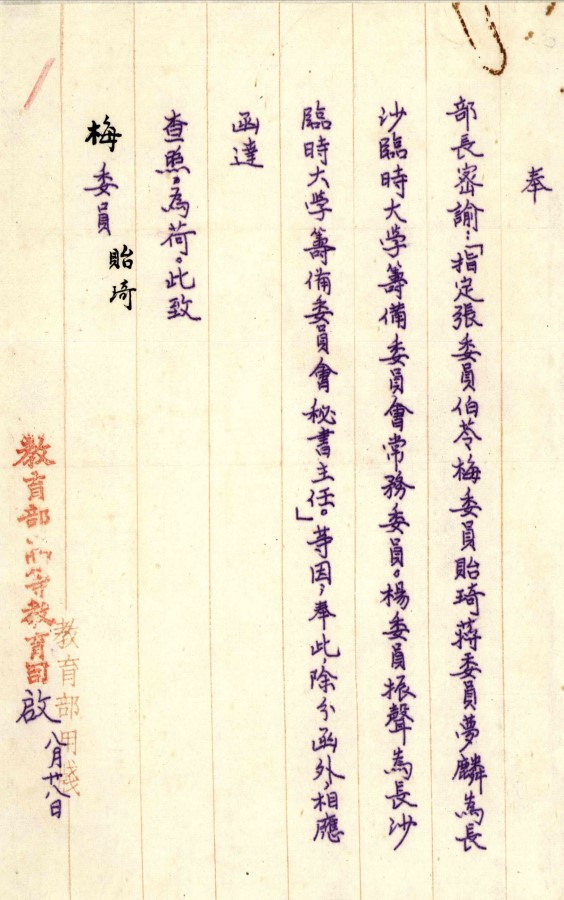 奉
部長密諭：「指定張委員伯苓梅委員貽琦蔣委員夢麟爲長
沙臨時大学籌備委員會常務委員。楊委員振聲爲長沙
臨時大学籌備委員會秘書主任。」等因，奉此，除分函外，相應
函達
查照，為荷。此致
梅委員貽琦
教育部高等教育司啟 八月廿八日
教育部用箋